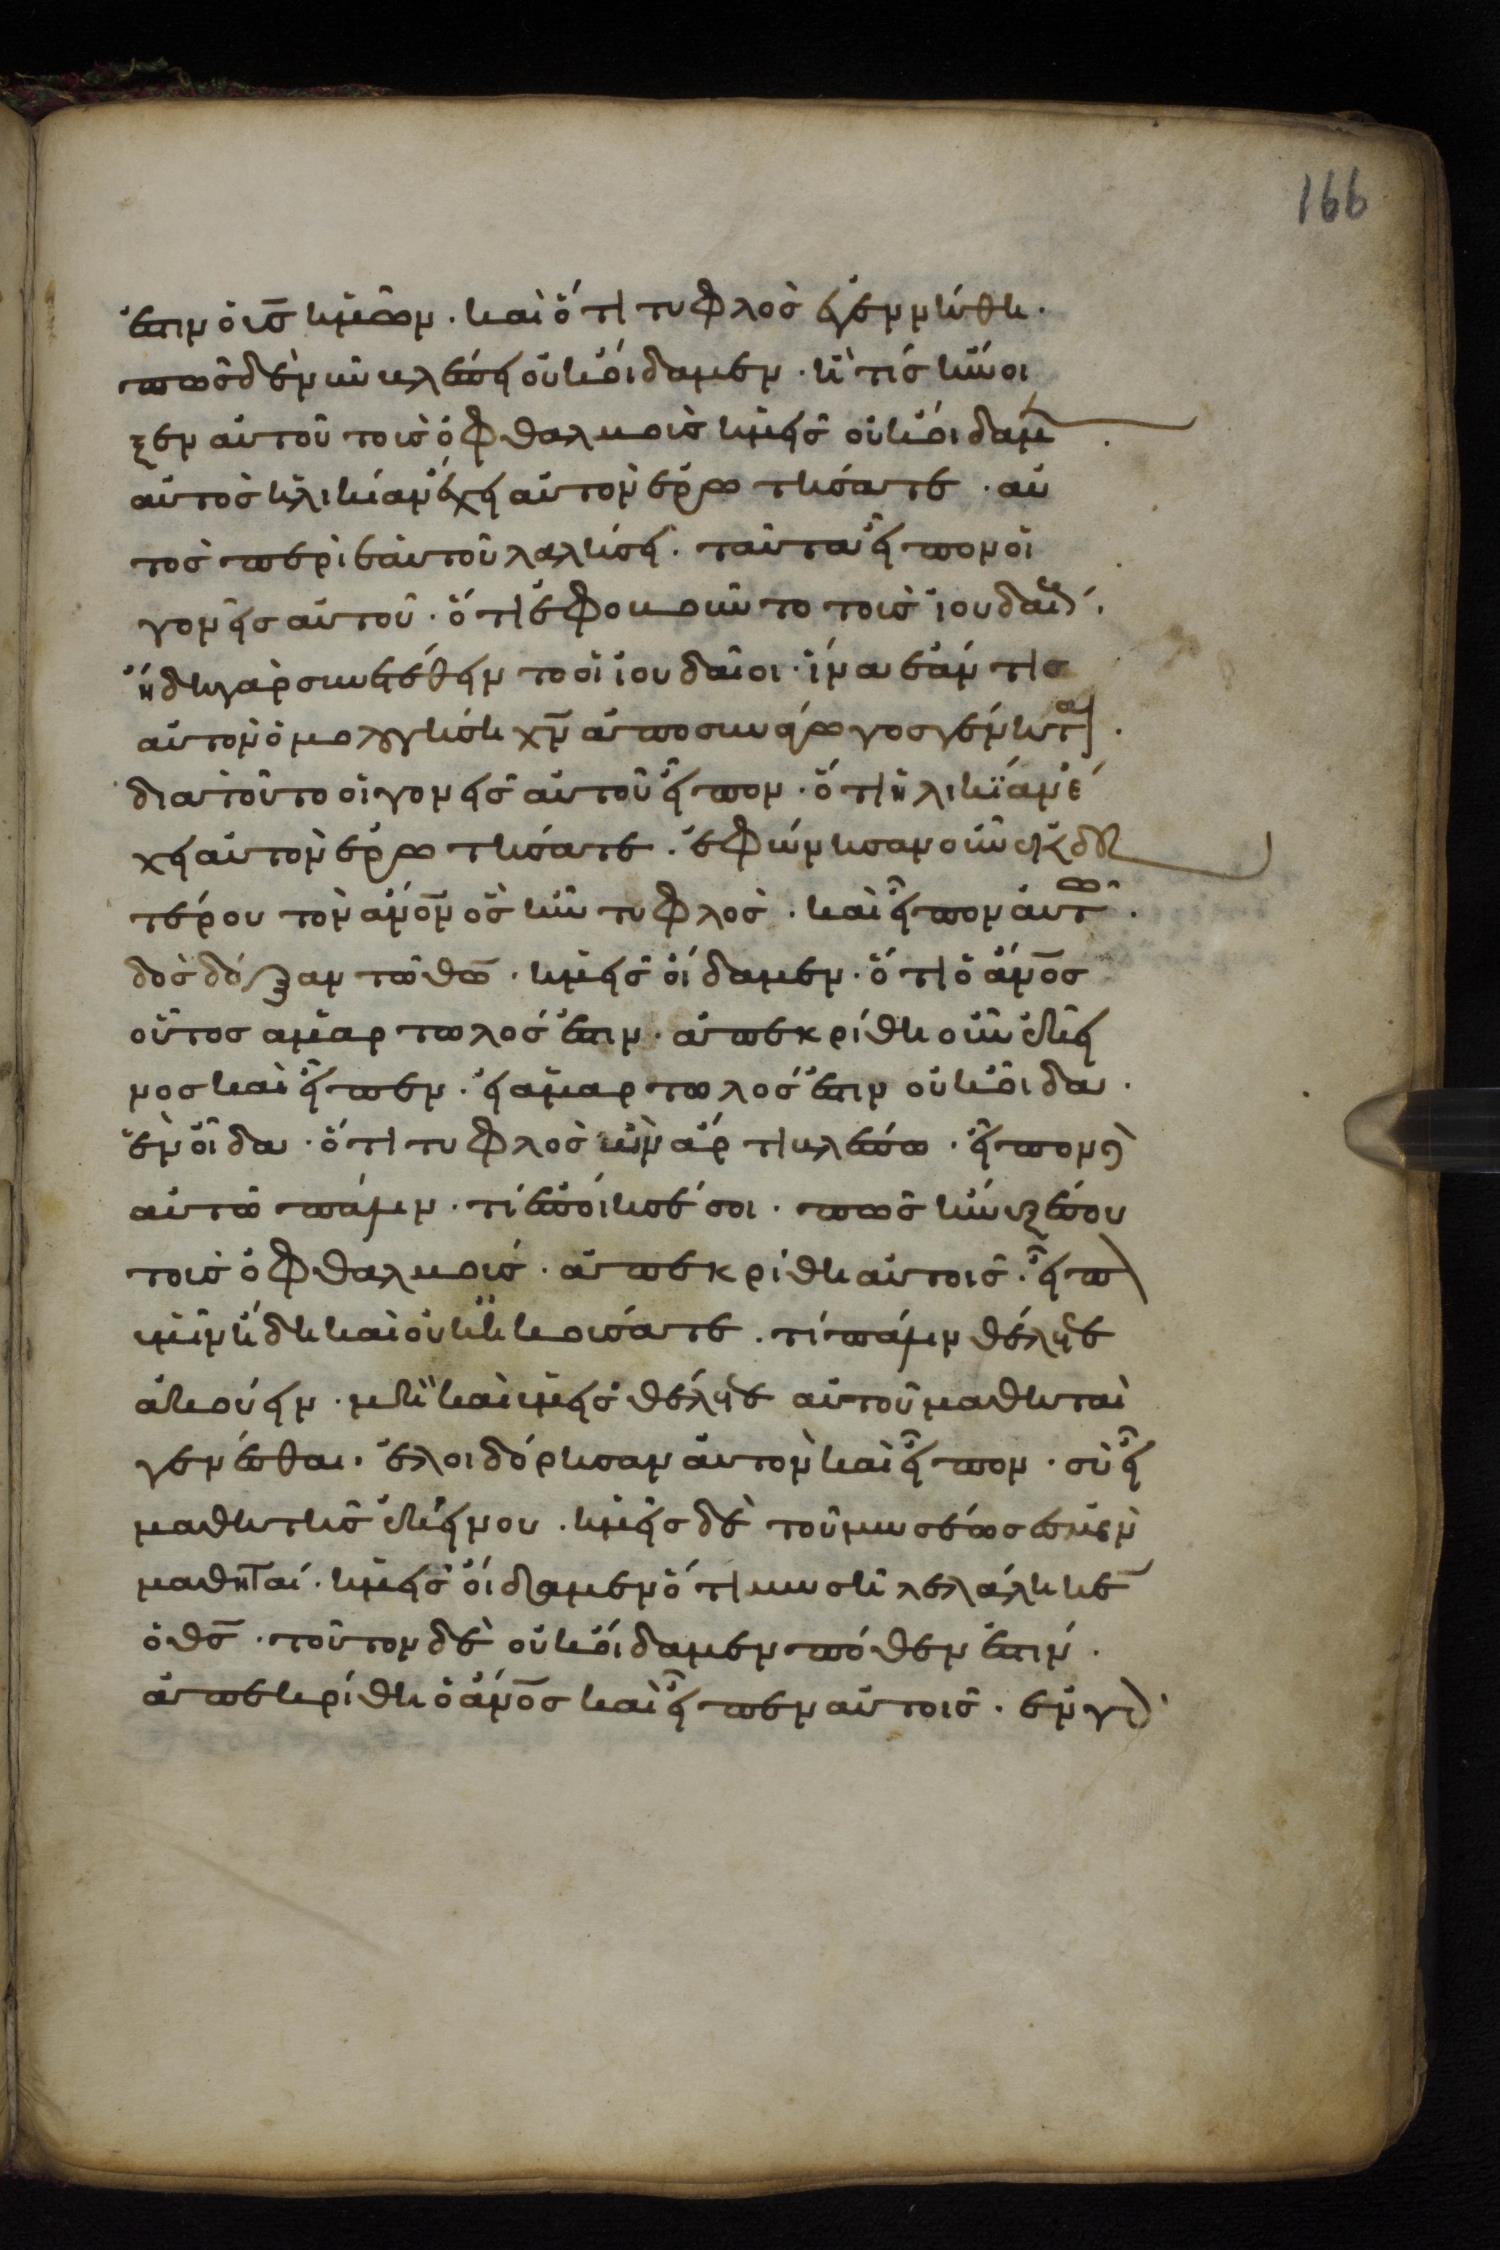 166
ἐστιν ὁ υ̅ς̅ ἡμῶν. καὶ ὅτι τυφλὸς ἐγεννήθη.
πῶς δὲ νῦν βλέπει οὐκ οἴδαμεν. ἢ τίς ἤνοι
ξεν αὐτοῦ τοὺς ὀφθαλμοὺς ἡμεῖς οὐκ οἴδαμεν.
αὐτὸς ἡλικίαν ἔχει αὐτὸν ἐρωτήσατε. αὐ
τὸς περὶ ἑαυτοῦ λαλήσει. ταῦτα εἶπον οἱ
γονεῖς αὐτοῦ. ὅτι ἐφοβοῦντο τοὺς ἰουδαίους.
ἤδη γὰρ συνετέθειντο οἱ ἰουδαῖοι. ἵνα ἐάν τις
αὐτὸν ὁμολογήσῃ χ̅ν̅ ἀποσυνάγωγος γένηται.
διατοῦτο οἱ γονεῖς αὐτοῦ εἶπον. ὅτι ἡλικίαν ἔ
χει αὐτὸν ἐρωτήσατε. ἐφώνησαν οὖν ἐκ δευ
τέρου τὸν ἄν̅ο̅ν̅ ὃς ἦν τυφλὸς. καὶ εἶπον αὐτῶ.
δὸς δόξαν τῶ θ̅ω̅. ἡμεῖς οἴδαμεν. ὅτι ὁ ἄν̅ο̅ς̅
οὗτος ἁμαρτωλός ἐστιν. ἀπεκρίθη οὖν ἐκεῖ
νος καὶ εἶπεν. εἰ ἁμαρτωλός ἐστιν οὐκ οἶδα.
ἓν οἶδα. ὅτι τυφλὸς ὢν ἄρτι βλέπω. εἶπον δὲ
αὐτῶ πάλιν. τί ἐποίησέ σοι. πῶς ἤνοιξέ σου
τοὺς ὀφθαλμούς. ἀπεκρίθη αὐτοῖς. εἶπον
ὑμῖν ἤδη καὶ οὐκ ἠκούσατε. τί πάλιν θέλετε
ἀκούειν. μὴ καὶ ὑμεῖς θέλετε αὐτοῦ μαθηταὶ
γενέσθαι. ἐλοιδόρησαν αὐτὸν καὶ εἶπον. σὺ εἶ
μαθητὴς ἐκείνου. ἡμεῖς δὲ τοῦ μωσέως ἐσμὲν
μαθηταί. ἡμεῖς οἴδαμεν ὅτι μωσῆ λελάληκεν
ὁ θ̅ς̅. τοῦτον δὲ οὐκ οἴδαμεν πόθεν ἐστίν.
ἀπεκρίθη ὁ ἄν̅ο̅ς̅ καὶ εἶπεν αὐτοῖς. ἐν γὰρ